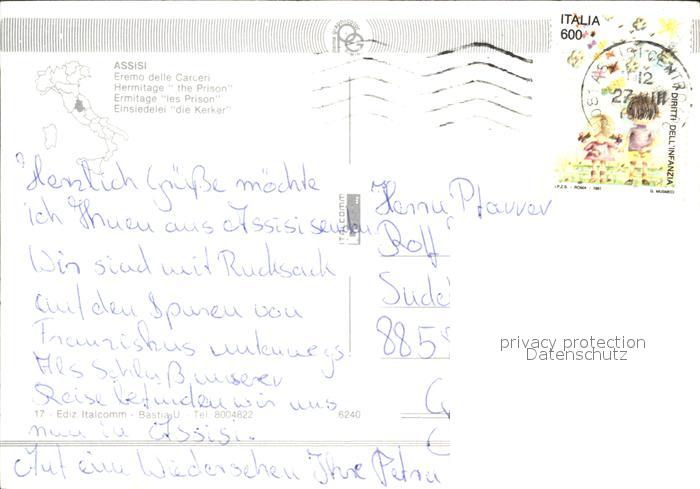 ASSISI
Eremo delle Carceri
Hermitage " the Prison"
Ermitage "les Prison"
Einsiedelei "die Kerker"
ITALIA
600
DIRITTI DELL'INFANZIA
I.P.Z.S. - ROMA - 1991
12
27
Italcomm
Herzlich Grüße möchte
ich Ihnen aus Assisi senden
Wir sind mit Rucksack
auf den Spuren von
Franziskus unterwegs.
Als Schluß unserer
Reise befinden wir uns
nun in Assisi.
Auf ein Wiedersehen Ihre Petra
Herrn Pfarrer
Rolf
Sude
885
privacy protection
Datenschutz
17 - Ediz. Italcomm - Bastia U. - Tel. 8004822
6240